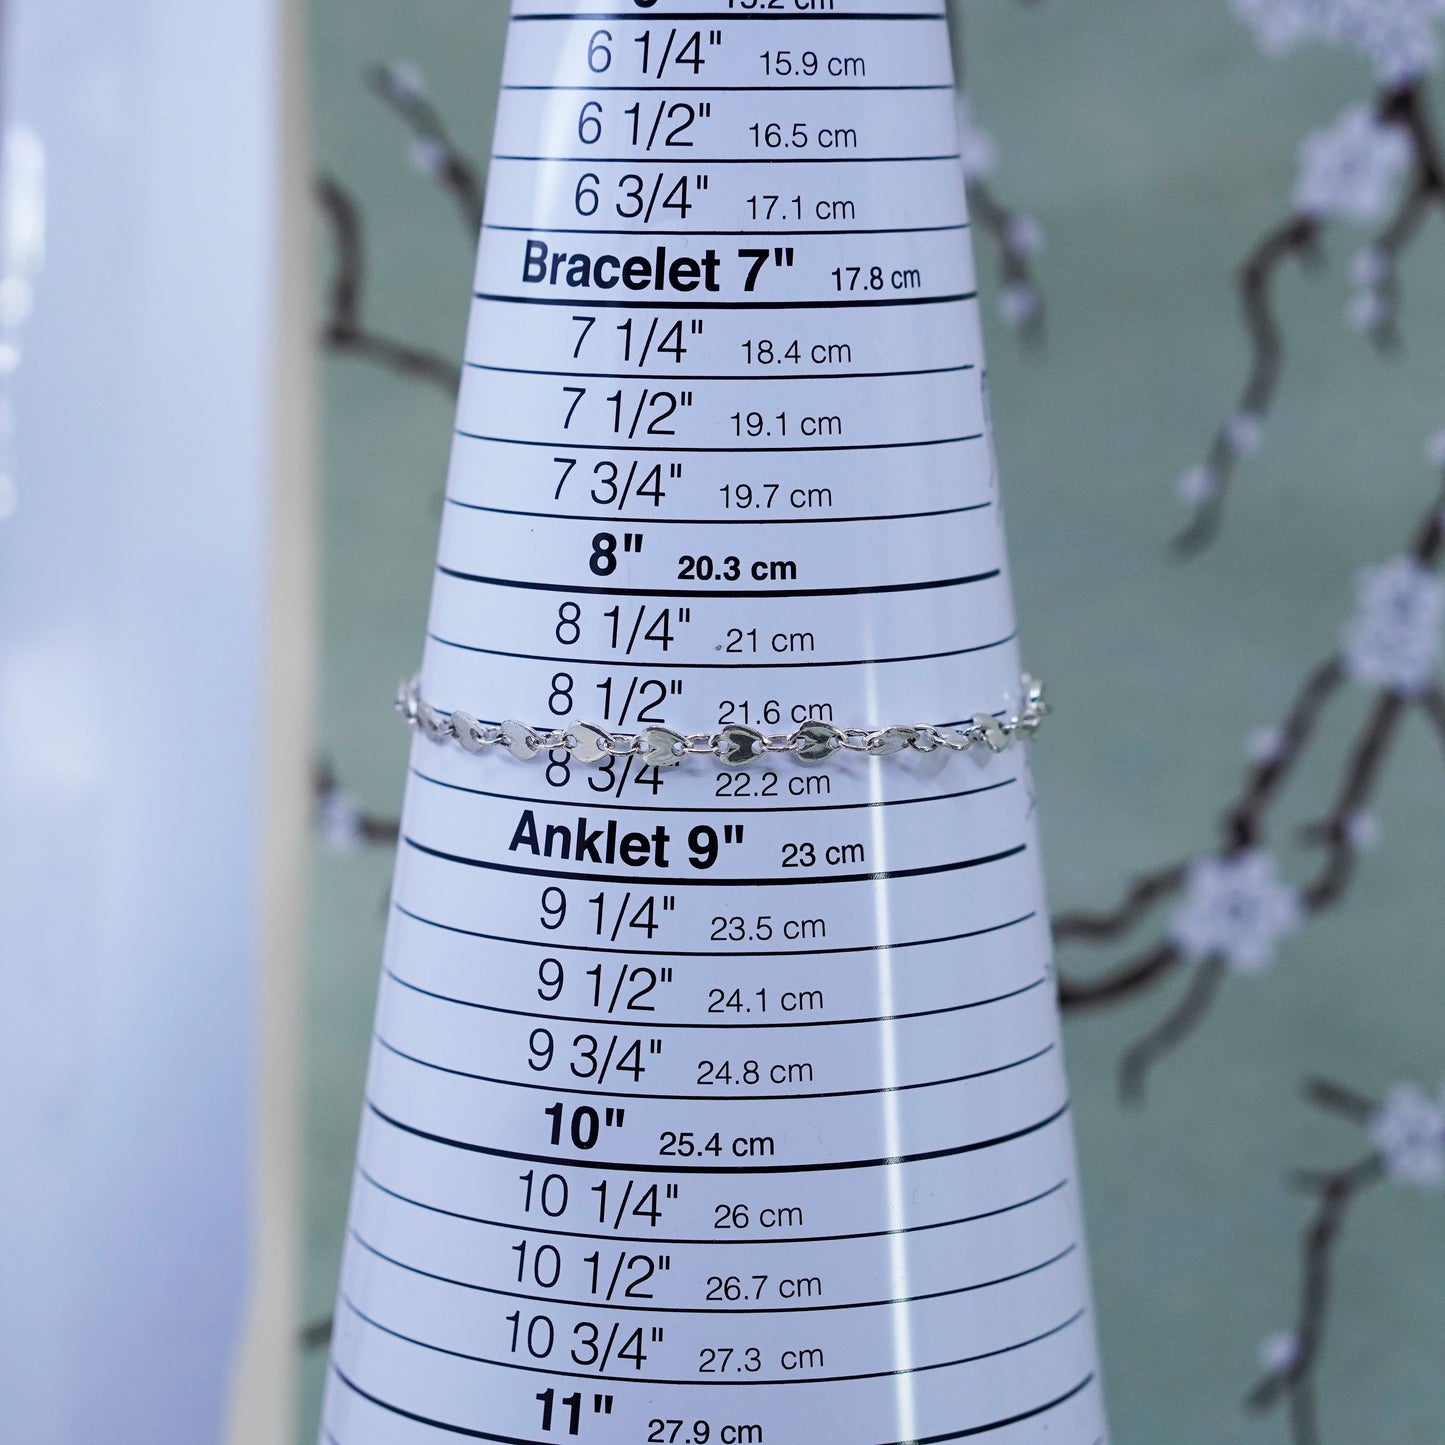 15.2 cm
6 1/4" 15.9 cm
6 1/2" 16.5 cm
6 3/4" 17.1 cm
Bracelet 7" 17.8 cm
7 1/4" 18.4 cm
7 1/2" 19.1 cm
7 3/4" 19.7 cm
8" 20.3 cm
8 1/4" 21 cm
8 1/2" 21.6 cm
8 3/4" 22.2 cm
Anklet 9" 23 cm
9 1/4" 23.5 cm
9 1/2" 24.1 cm
9 3/4" 24.8 cm
10" 25.4 cm
10 1/4" 26 cm
10 1/2" 26.7 cm
10 3/4" 27.3 cm
11" 27.9 cm